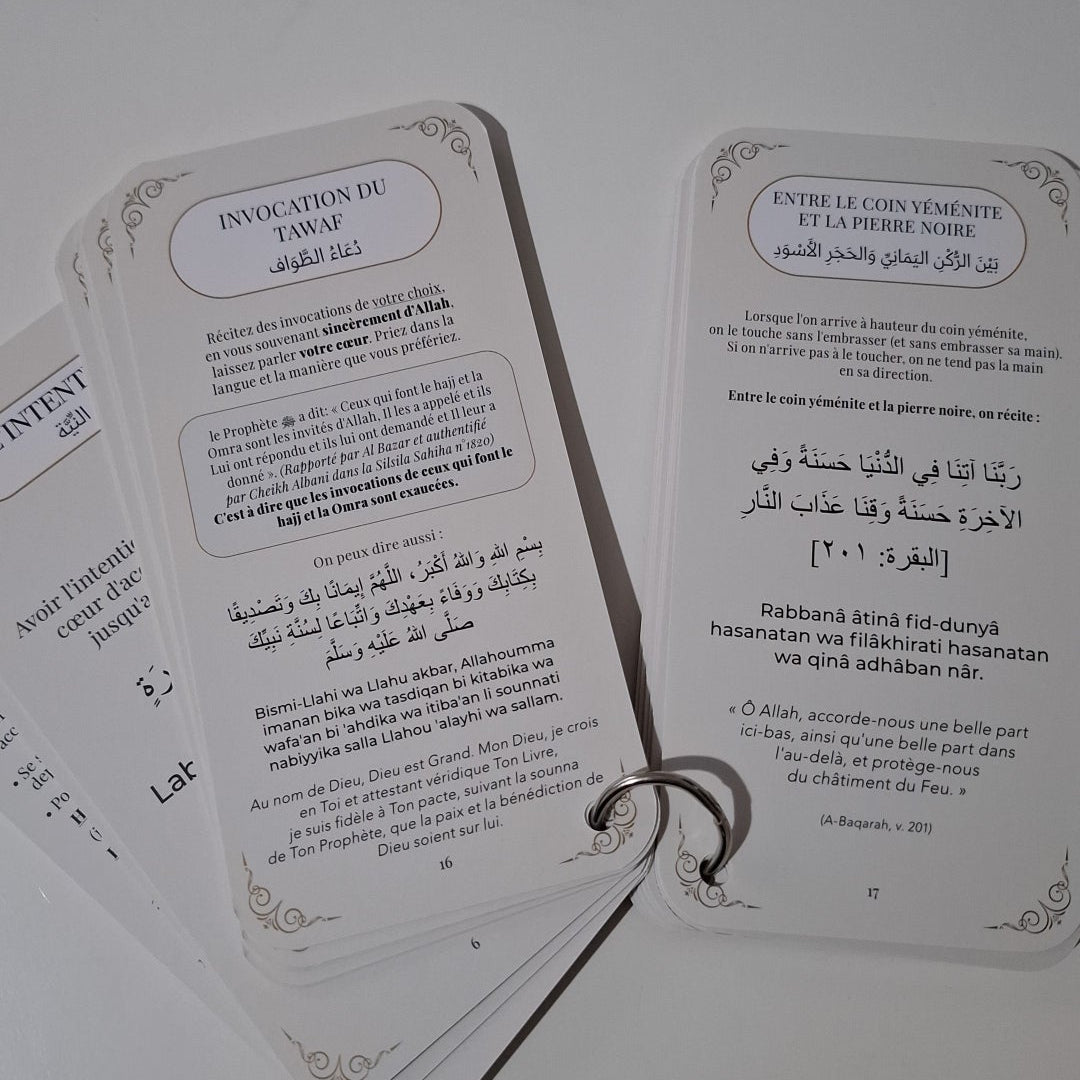 L'INTENT
النِّيَّة
Avoir l'intenti
cœur d'acc
jusqu'a
رَةٍ
Lab
acc
• Se
• Po
INVOCATION DU
TAWAF
دُعَاءُ الطَّوَاف
Récitez des invocations de votre choix,
en vous souvenant sincèrement d'Allah,
laissez parler votre cœur. Priez dans la
langue et la manière que vous préfériez.
le Prophète ﷺ a dit: « Ceux qui font le hajj et la
Omra sont les invités d'Allah, Il les a appelé et ils
Lui ont répondu et ils lui ont demandé et Il leur a
donné ». (Rapporté par Al Bazar et authentifié
par Cheikh Albani dans la Silsila Sahiha n°1820)
C'est à dire que les invocations de ceux qui font le
hajj et la Omra sont exaucées.
On peux dire aussi :
بِسْمِ اللهِ وَاللهُ أَكْبَرُ، اللَّهُمَّ إِيمَانًا بِكَ وَتَصْدِيقًا
بِكِتَابِكَ وَوَفَاءً بِعَهْدِكَ وَاتِّبَاعًا لِسُنَّةِ نَبِيِّكَ
صَلَّى اللهُ عَلَيْهِ وَسَلَّمَ
Bismi-Llahi wa Llahu akbar, Allahoumma
imanan bika wa tasdiqan bi kitabika wa
wafa'an bi 'ahdika wa itiba'an li sounnati
nabiyyika salla Llahou 'alayhi wa sallam.
Au nom de Dieu, Dieu est Grand. Mon Dieu, je crois
en Toi et attestant véridique Ton Livre,
je suis fidèle à Ton pacte, suivant la sounna
de Ton Prophète, que la paix et la bénédiction de
Dieu soient sur lui.
16
6
ENTRE LE COIN YÉMÉNITE
ET LA PIERRE NOIRE
بَيْنَ الرُّكْنِ اليَمَانِيِّ وَالحَجَرِ الأَسْوَدِ
Lorsque l'on arrive à hauteur du coin yéménite,
on le touche sans l'embrasser (et sans embrasser sa main).
Si on n'arrive pas à le toucher, on ne tend pas la main
en sa direction.
Entre le coin yéménite et la pierre noire, on récite :
رَبَّنَا آتِنَا فِي الدُّنْيَا حَسَنَةً وَفِي
الآخِرَةِ حَسَنَةً وَقِنَا عَذَابَ النَّارِ
[البقرة: ٢٠١]
Rabbanâ âtinâ fid-dunyâ
hasanatan wa filâkhirati hasanatan
wa qinâ adhâban nâr.
« Ô Allah, accorde-nous une belle part
ici-bas, ainsi qu'une belle part dans
l'au-delà, et protège-nous
du châtiment du Feu. »
(A-Baqarah, v. 201)
17